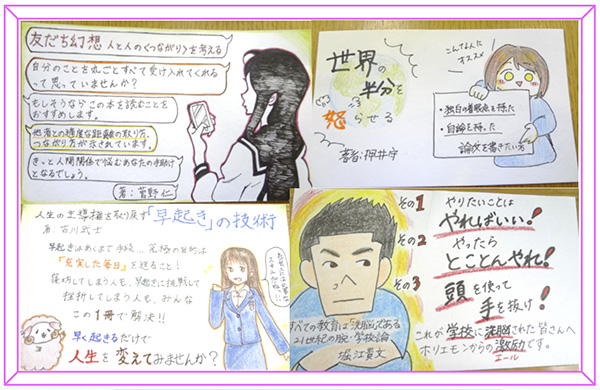 友だち幻想 人と人の〈つながり〉を考える
自分のことを丸ごとすべて受け入れてくれる
って思っていませんか?
もしそうならこの本を読むことを
おすすめします。
他者との適度な距離の取り方、
つながり方が示されています。
きっと人間関係で悩むあなたの手助け
となるでしょう。
著:菅野 仁
世界の
半分を
怒らせる
著者:押井守
こんな人に
オススメ
・独自の着眼点を持った
・自論を持った
論文を書きたい方
人生の主導権を取り戻す「早起き」の技術
著. 古川武士
早起きはあくまで手段…究極の目的は
「充実した毎日」を送ること!
寝坊してしまう人も、早起きに挑戦して
挫折してしまう人も、みんな
この1冊で解決!!
早く起きるだけで
人生を変えてみませんか?
その1
やりたいことは
やればいい!
その2
やったら
とことんやれ!
その3
頭を使って
手を抜け!
すべての教育は「洗脳」である
21世紀の脱・学校論
堀江貴文
これが学校に洗脳された皆さんへ
ホリエモンからの激励です。
エール